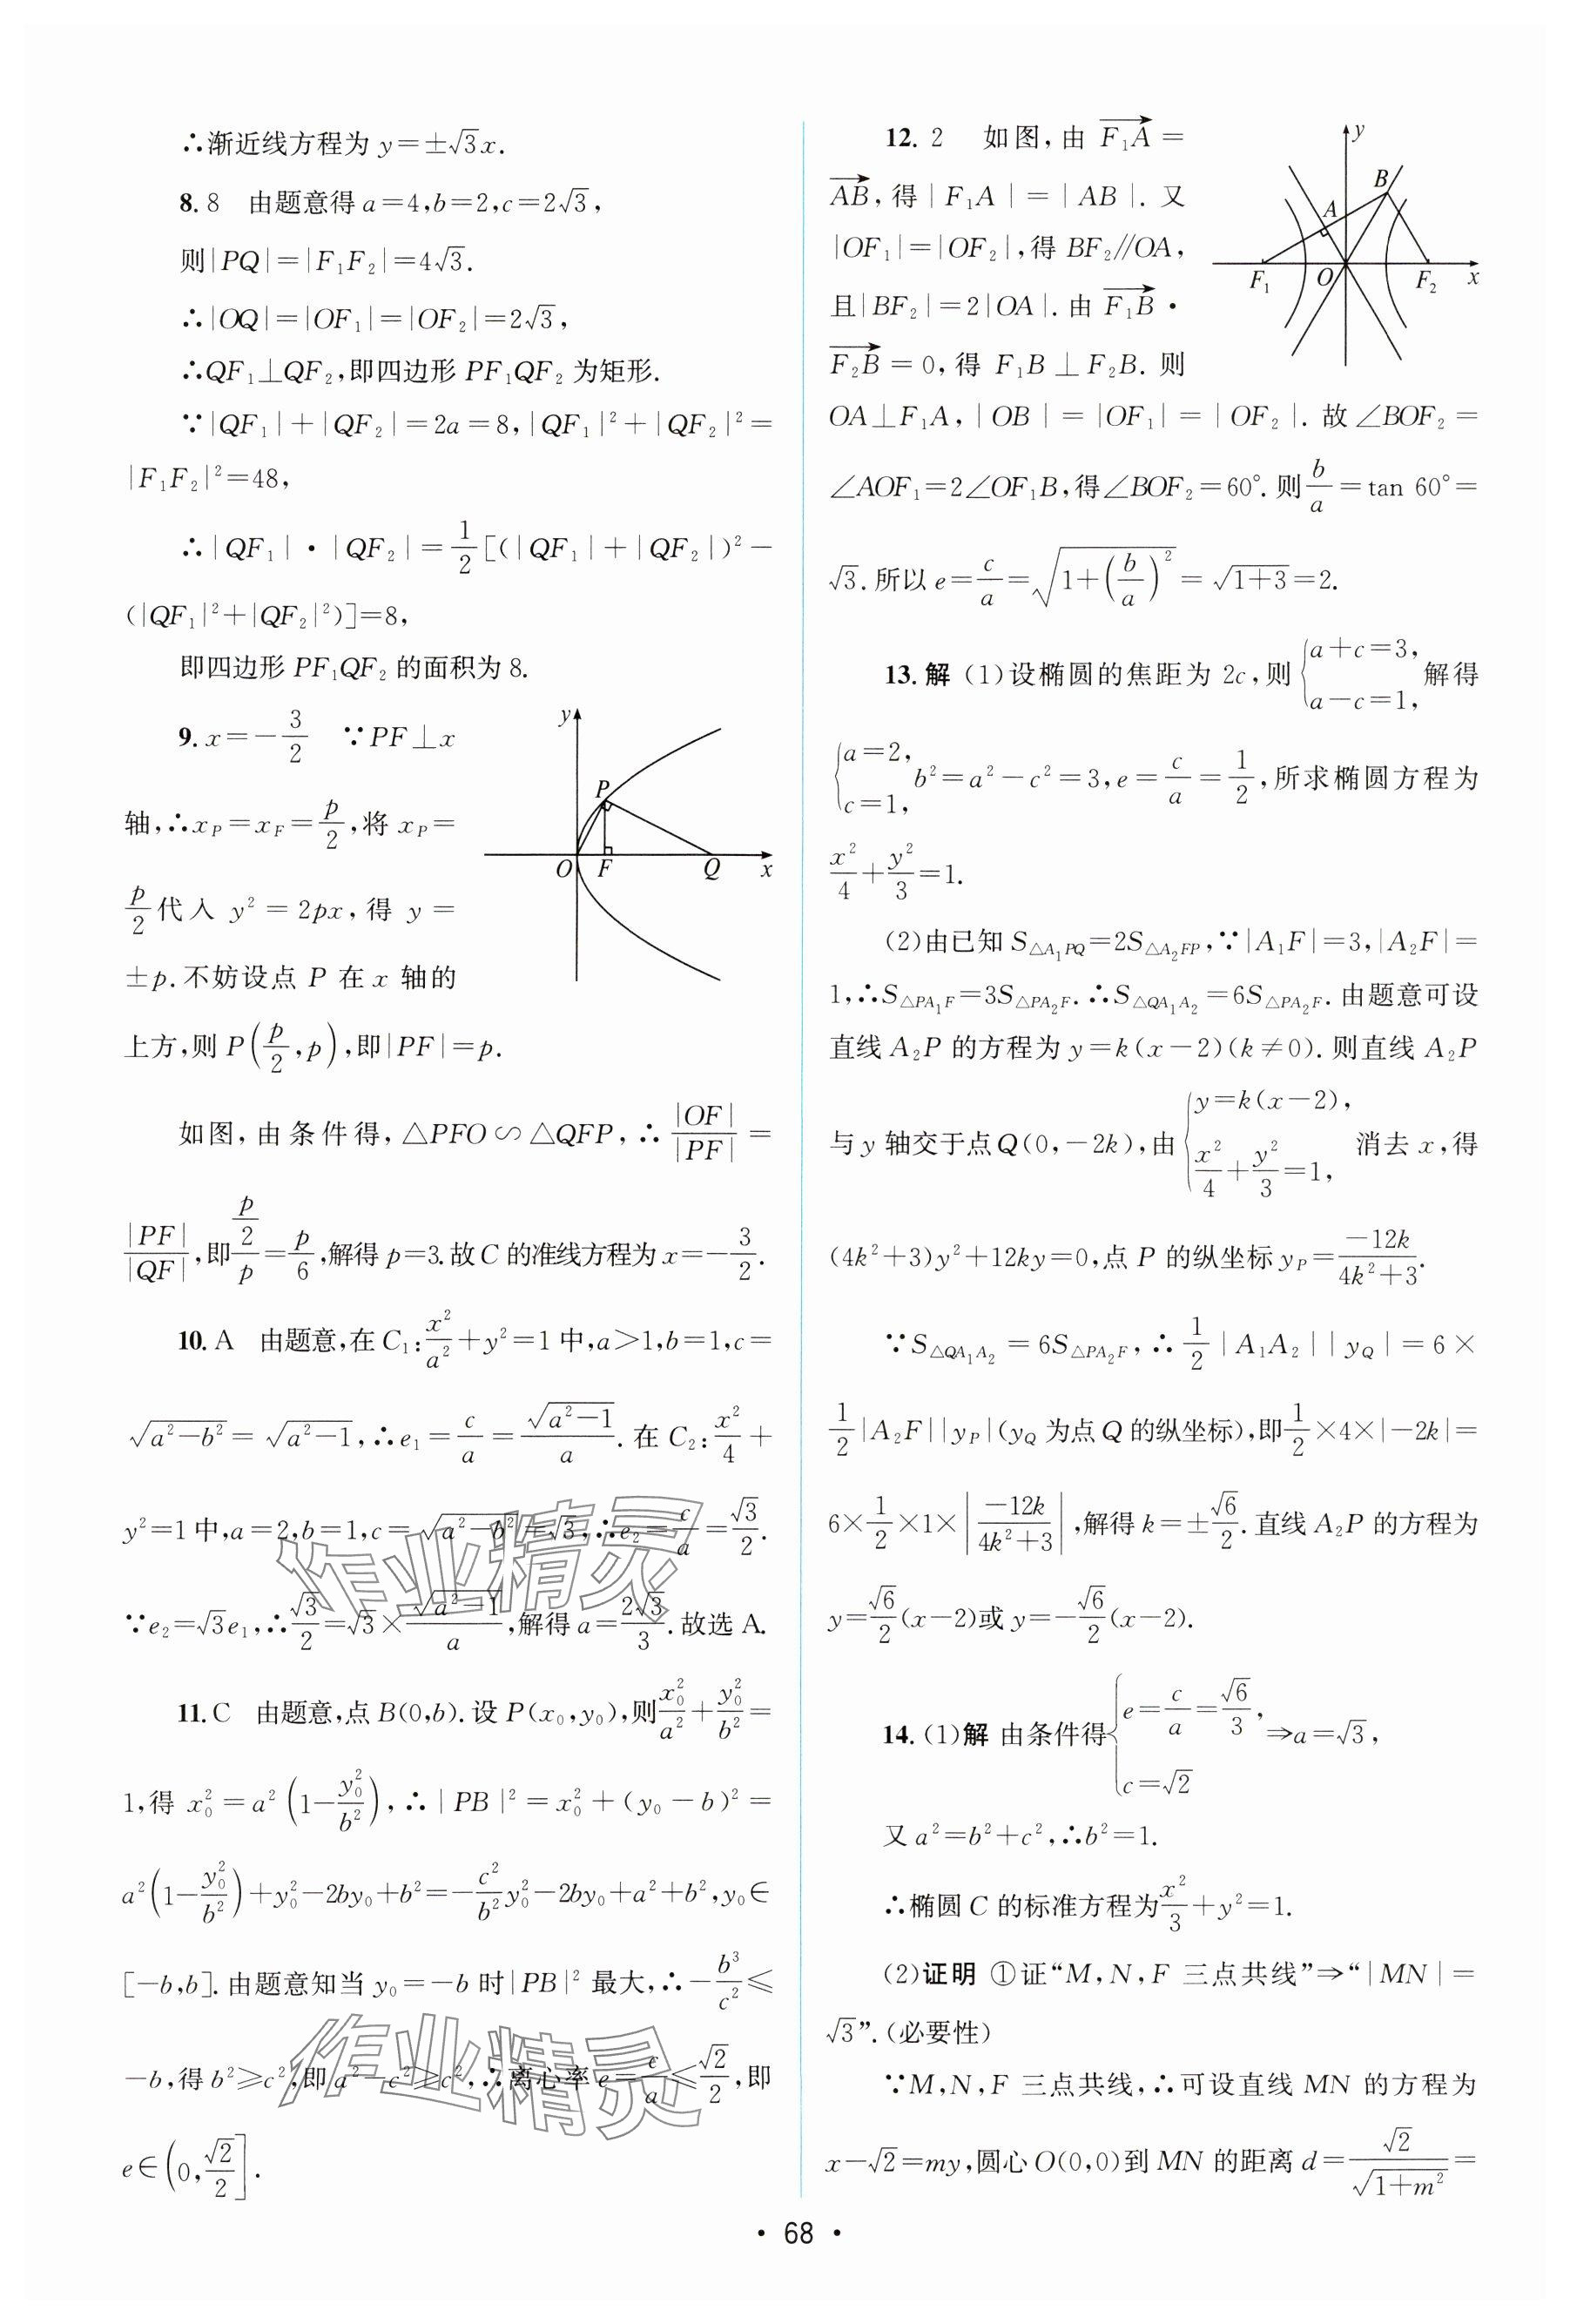 ∴渐近线方程为 y=±√3x.
8. 8 由题意得 a=4,b=2,c=2√3,
则|PQ|=|F₁F₂|=4√3.
∴|OQ|=|OF₁|=|OF₂|=2√3,
∴QF₁⊥QF₂,即四边形 PF₁QF₂ 为矩形.
∵|QF₁|+|QF₂|=2a=8,|QF₁|²+|QF₂|²=
|F₁F₂|²=48,
∴|QF₁|·|QF₂|=1/2[(|QF₁|+|QF₂|)²-
(|QF₁|²+|QF₂|²)]=8,
即四边形 PF₁QF₂ 的面积为 8.
9. x=-3/2 ∵PF⊥x
轴,∴x_P=x_F=p/2,将 x_P=
p/2代入 y²=2px,得 y=
±p.不妨设点 P 在 x 轴的
上方,则 P(p/2,p),即|PF|=p.
y
P
O F Q x
如图,由条件得,△PFO∽△QFP,∴|OF|/|PF|=
|PF|/|QF|,即(p/2)/p=p/6,解得 p=3.故 C 的准线方程为 x=-3/2.
10. A 由题意,在 C₁:x²/a²+y²=1 中,a>1,b=1,c=
√(a²-b²)=√(a²-1),∴e₁=c/a=√(a²-1)/a.在 C₂:x²/4+
y²=1 中,a=2,b=1,c=√(a²-b²)=√3,∴e₂=c/a=√3/2.
∵e₂=√3e₁,∴√3/2=√3×√(a²-1)/a,解得 a=2√3/3.故选 A.
11. C 由题意,点 B(0,b).设 P(x₀,y₀),则x₀²/a²+y₀²/b²=
1,得 x₀²=a²(1-y₀²/b²),∴|PB|²=x₀²+(y₀-b)²=
a²(1-y₀²/b²)+y₀²-2by₀+b²=-c²/b²y₀²-2by₀+a²+b²,y₀∈
[-b,b].由题意知当 y₀=-b 时|PB|² 最大,∴-b³/c²≤
-b,得 b²≥c²,即 a²-c²≥c²,∴离心率 e=c/a≤√2/2,即
e∈(0,√2/2].
12. 2 如图,由 →F₁A=
→AB,得|F₁A|=|AB|.又
|OF₁|=|OF₂|,得 BF₂∥OA,
且|BF₂|=2|OA|.由 →F₁B·
→F₂B=0,得 F₁B⊥F₂B.则
y
B
A
F₁ O F₂ x
OA⊥F₁A,|OB|=|OF₁|=|OF₂|.故∠BOF₂=
∠AOF₁=2∠OF₁B,得∠BOF₂=60°.则b/a=tan 60°=
√3.所以 e=c/a=√(1+(b/a)²)=√(1+3)=2.
13. 解 (1)设椭圆的焦距为 2c,则{a+c=3, a-c=1,解得
{a=2, c=1, b²=a²-c²=3,e=c/a=1/2,所求椭圆方程为
x²/4+y²/3=1.
(2)由已知 S△A₁PQ=2S△A₂FP,∵|A₁F|=3,|A₂F|=
1,∴S△PA₁F=3S△PA₂F.∴S△QA₁A₂=6S△PA₂F.由题意可设
直线 A₂P 的方程为 y=k(x-2)(k≠0).则直线 A₂P
与 y 轴交于点 Q(0,-2k),由{y=k(x-2), x²/4+y²/3=1, 消去 x,得
(4k²+3)y²+12ky=0,点 P 的纵坐标 y_P=-12k/(4k²+3).
∵S△QA₁A₂=6S△PA₂F,∴1/2|A₁A₂||y_Q|=6×
1/2|A₂F||y_P|(y_Q 为点 Q 的纵坐标),即1/2×4×|-2k|=
6×1/2×1×|-12k/(4k²+3)|,解得 k=±√6/2.直线 A₂P 的方程为
y=√6/2(x-2)或 y=-√6/2(x-2).
14. (1)解 由条件得{e=c/a=√6/3, c=√2 ⇒a=√3,
又 a²=b²+c²,∴b²=1.
∴椭圆 C 的标准方程为x²/3+y²=1.
(2)证明 ①证“M,N,F 三点共线”⇒“|MN|=
√3”.(必要性)
∵M,N,F 三点共线,∴可设直线 MN 的方程为
x-√2=my,圆心 O(0,0)到 MN 的距离 d=√2/√(1+m²)=
作业精灵
作业精灵
· 68 ·